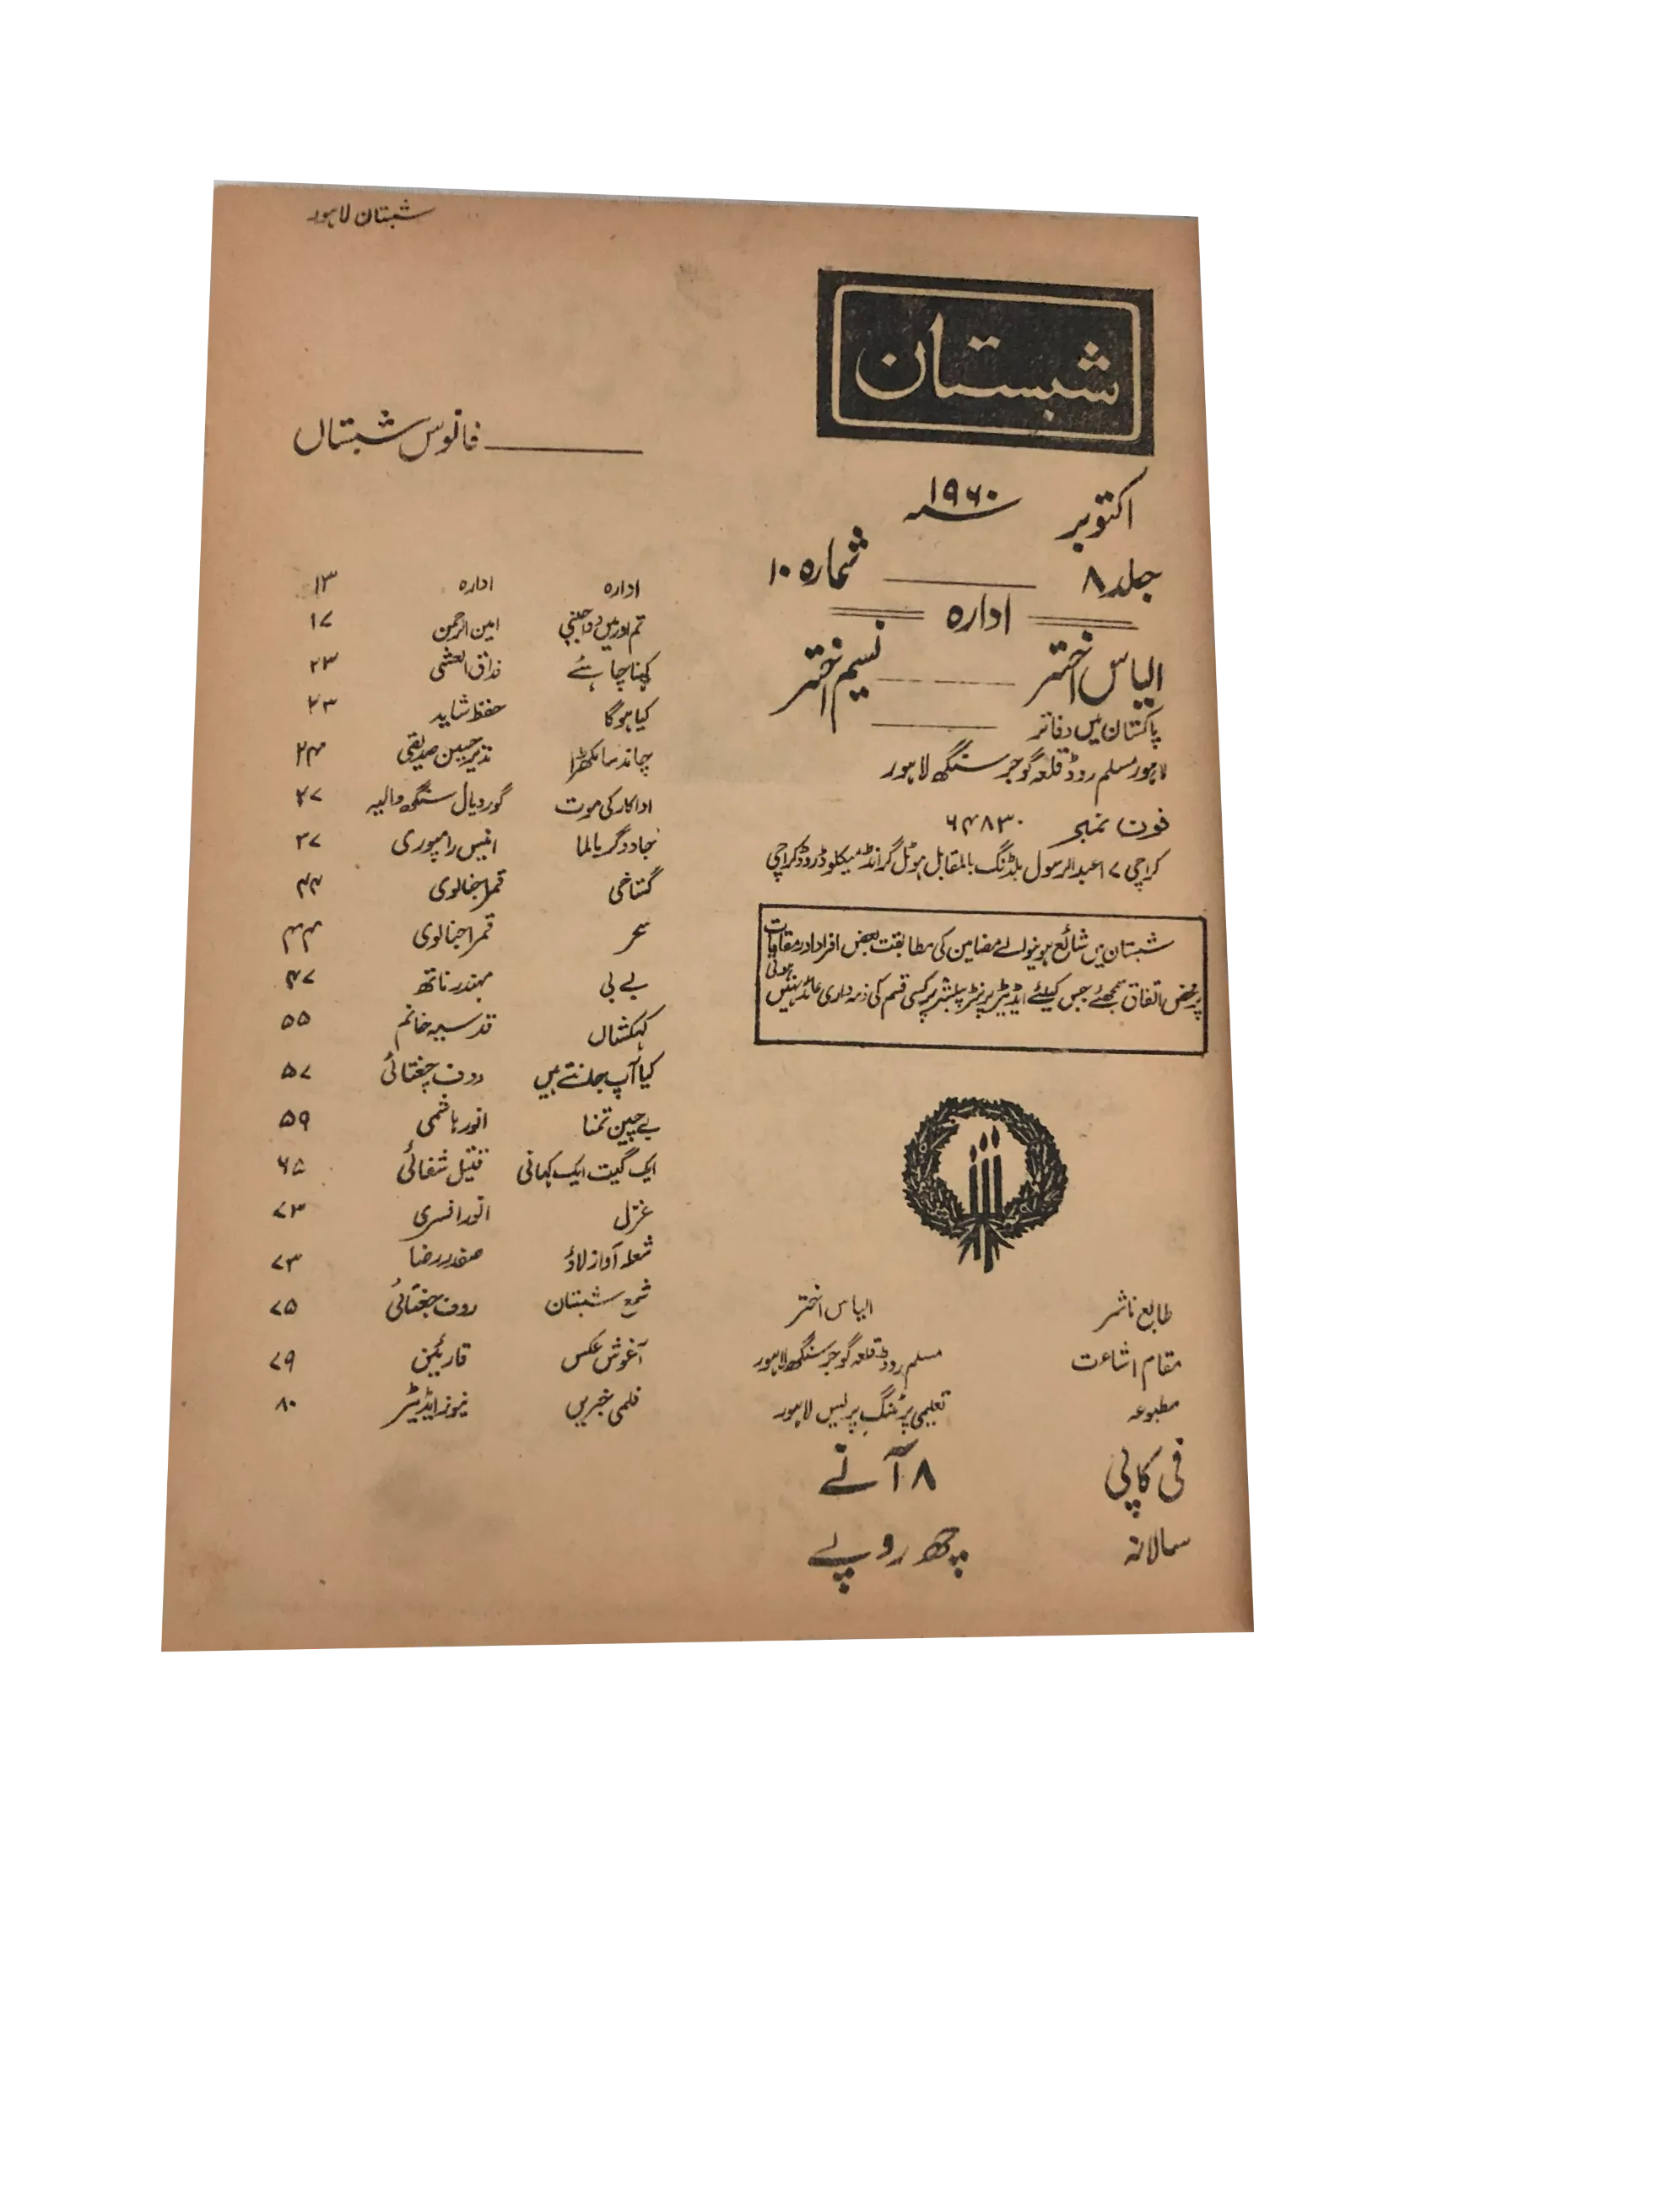 شبستان لاہور
شبستان
اکتوبر ۱۹۶۰ سنہ
جلد ۸ شمارہ ۱۰
ادارہ
الیاس اختر نسیم اختر
پاکستان میں دفاتر
لاہور مسلم روڈ قلعہ گوجر سنگھ لاہور
فون نمبر ۶۴۸۳۰
کراچی ۱۷ عبدالرسول بلڈنگ بالمقابل ہوٹل گرانڈ میکلوڈ روڈ کراچی
شبستان میں شائع ہونیوالے مضامین کی مطابقت بعض افراد اور مقامات
پر محض اتفاق سمجھئے جس کیلئے ایڈیٹر پرنٹر پبلشر پر کسی قسم کی ذمہ داری عائد نہیں ہوتی
طابع ناشر الیاس اختر
مقام اشاعت مسلم روڈ قلعہ گوجر سنگھ لاہور
مطبوعہ تعلیمی پرنٹنگ پریس لاہور
فی کاپی ۸ آنے
سالانہ چھ روپے
فانوس شبستاں
ادارہ ادارہ ۱۳
تم اور میں دو اجنبی امین الرحمن ۱۷
کہنا چاہئے مذاق العیشی ۲۳
کیا ہوگا حفظ شاید ۲۳
چاند سا مکھڑا نذیر حسین صدیقی ۲۴
اداکار کی موت گوردیال سنگھ والیہ ۲۷
جادوگر بالما انیس رامپوری ۳۷
گستاخی قمر اجنالوی ۴۴
سحر قمر اجنالوی ۴۴
بے بی مہندر ناتھ ۴۷
کہکشاں قدسیہ خانم ۵۵
کیا آپ جانتے ہیں روف چغتائی ۵۷
بے چین تمنا انور ہاشمی ۵۹
ایک گیت ایک کہانی قتیل شفائی ۶۵
غزل انور افسری ۷۳
شعلہ آواز لاؤ صفدر رضا ۷۳
شمع شبستان روف چغتائی ۷۵
آغوش عکس قارئین ۷۹
فلمی خبریں نیوز ایڈیٹر ۸۰